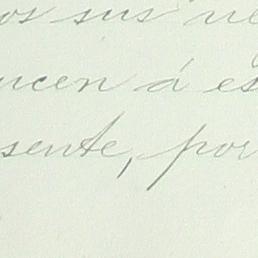 os sus ne
ucen á es
sente, por